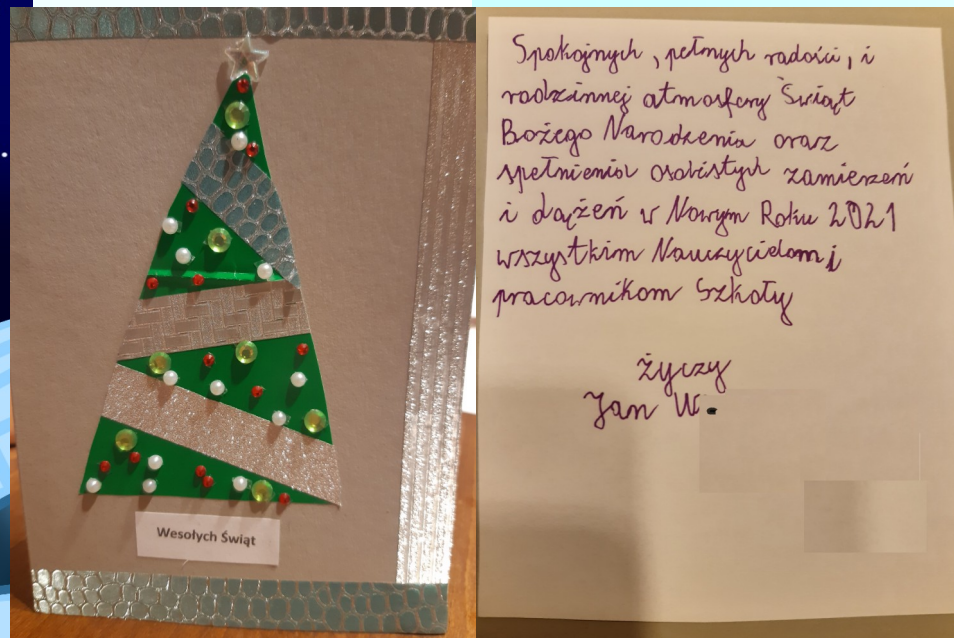 Wesołych Świąt
Spokojnych, pełnych radości, i
rodzinnej atmosfery Świąt
Bożego Narodzenia oraz
spełnienia osobistych zamierzeń
i dążeń w Nowym Roku 2021
wszystkim Nauczycielom i
pracownikom Szkoły
życzy
Jan W.